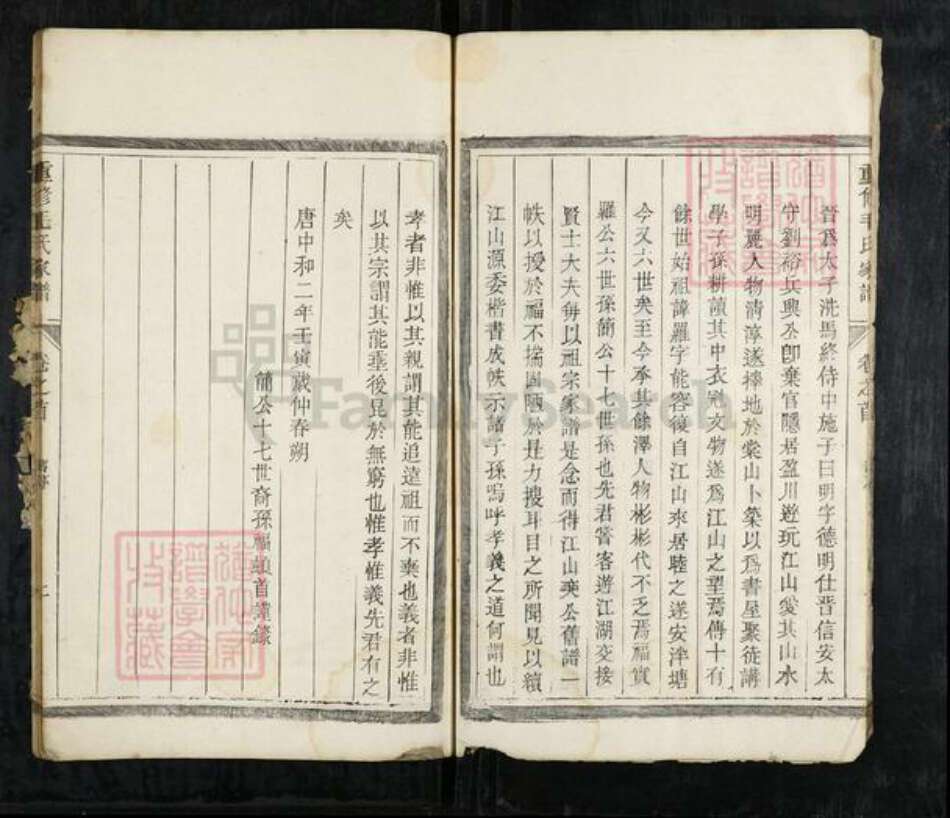 重修毛氏家譜
卷之首
晉爲太子洗馬終侍中施子曰明字德明仕晉信安太
守劉裕兵興公卽棄官隱居盈川遊玩江山愛其山水
明麗人物清淳遂擇地於棠山卜築以爲書屋聚徒講
學子孫耕讀其中衣冠文物遂爲江山之望焉傳十有
餘世始祖諱羅字能容後自江山來居睦之遂安泮塘
今又六世矣至今承其餘澤人物彬彬代不乏焉福實
羅公六世孫簡公十七世孫也先君嘗客遊江湖交接
賢士大夫每以祖宗家譜是念而得江山奕公舊譜一
帙以授於福不揣固陋於是力搜耳目之所聞見以續
江山源委楷書成帙示諸子孫嗚呼孝義之道何謂也
孝者非惟以其親謂其能追遠祖而不喪也義者非惟
以其宗謂其能垂後昆於無窮也惟孝惟義先君有之
矣
唐中和二年壬寅歲仲春朔
簡公十七世裔孫福頓首謹錄
重修毛氏家譜
卷之首
舊序
FamilySearch
譜學會
收藏